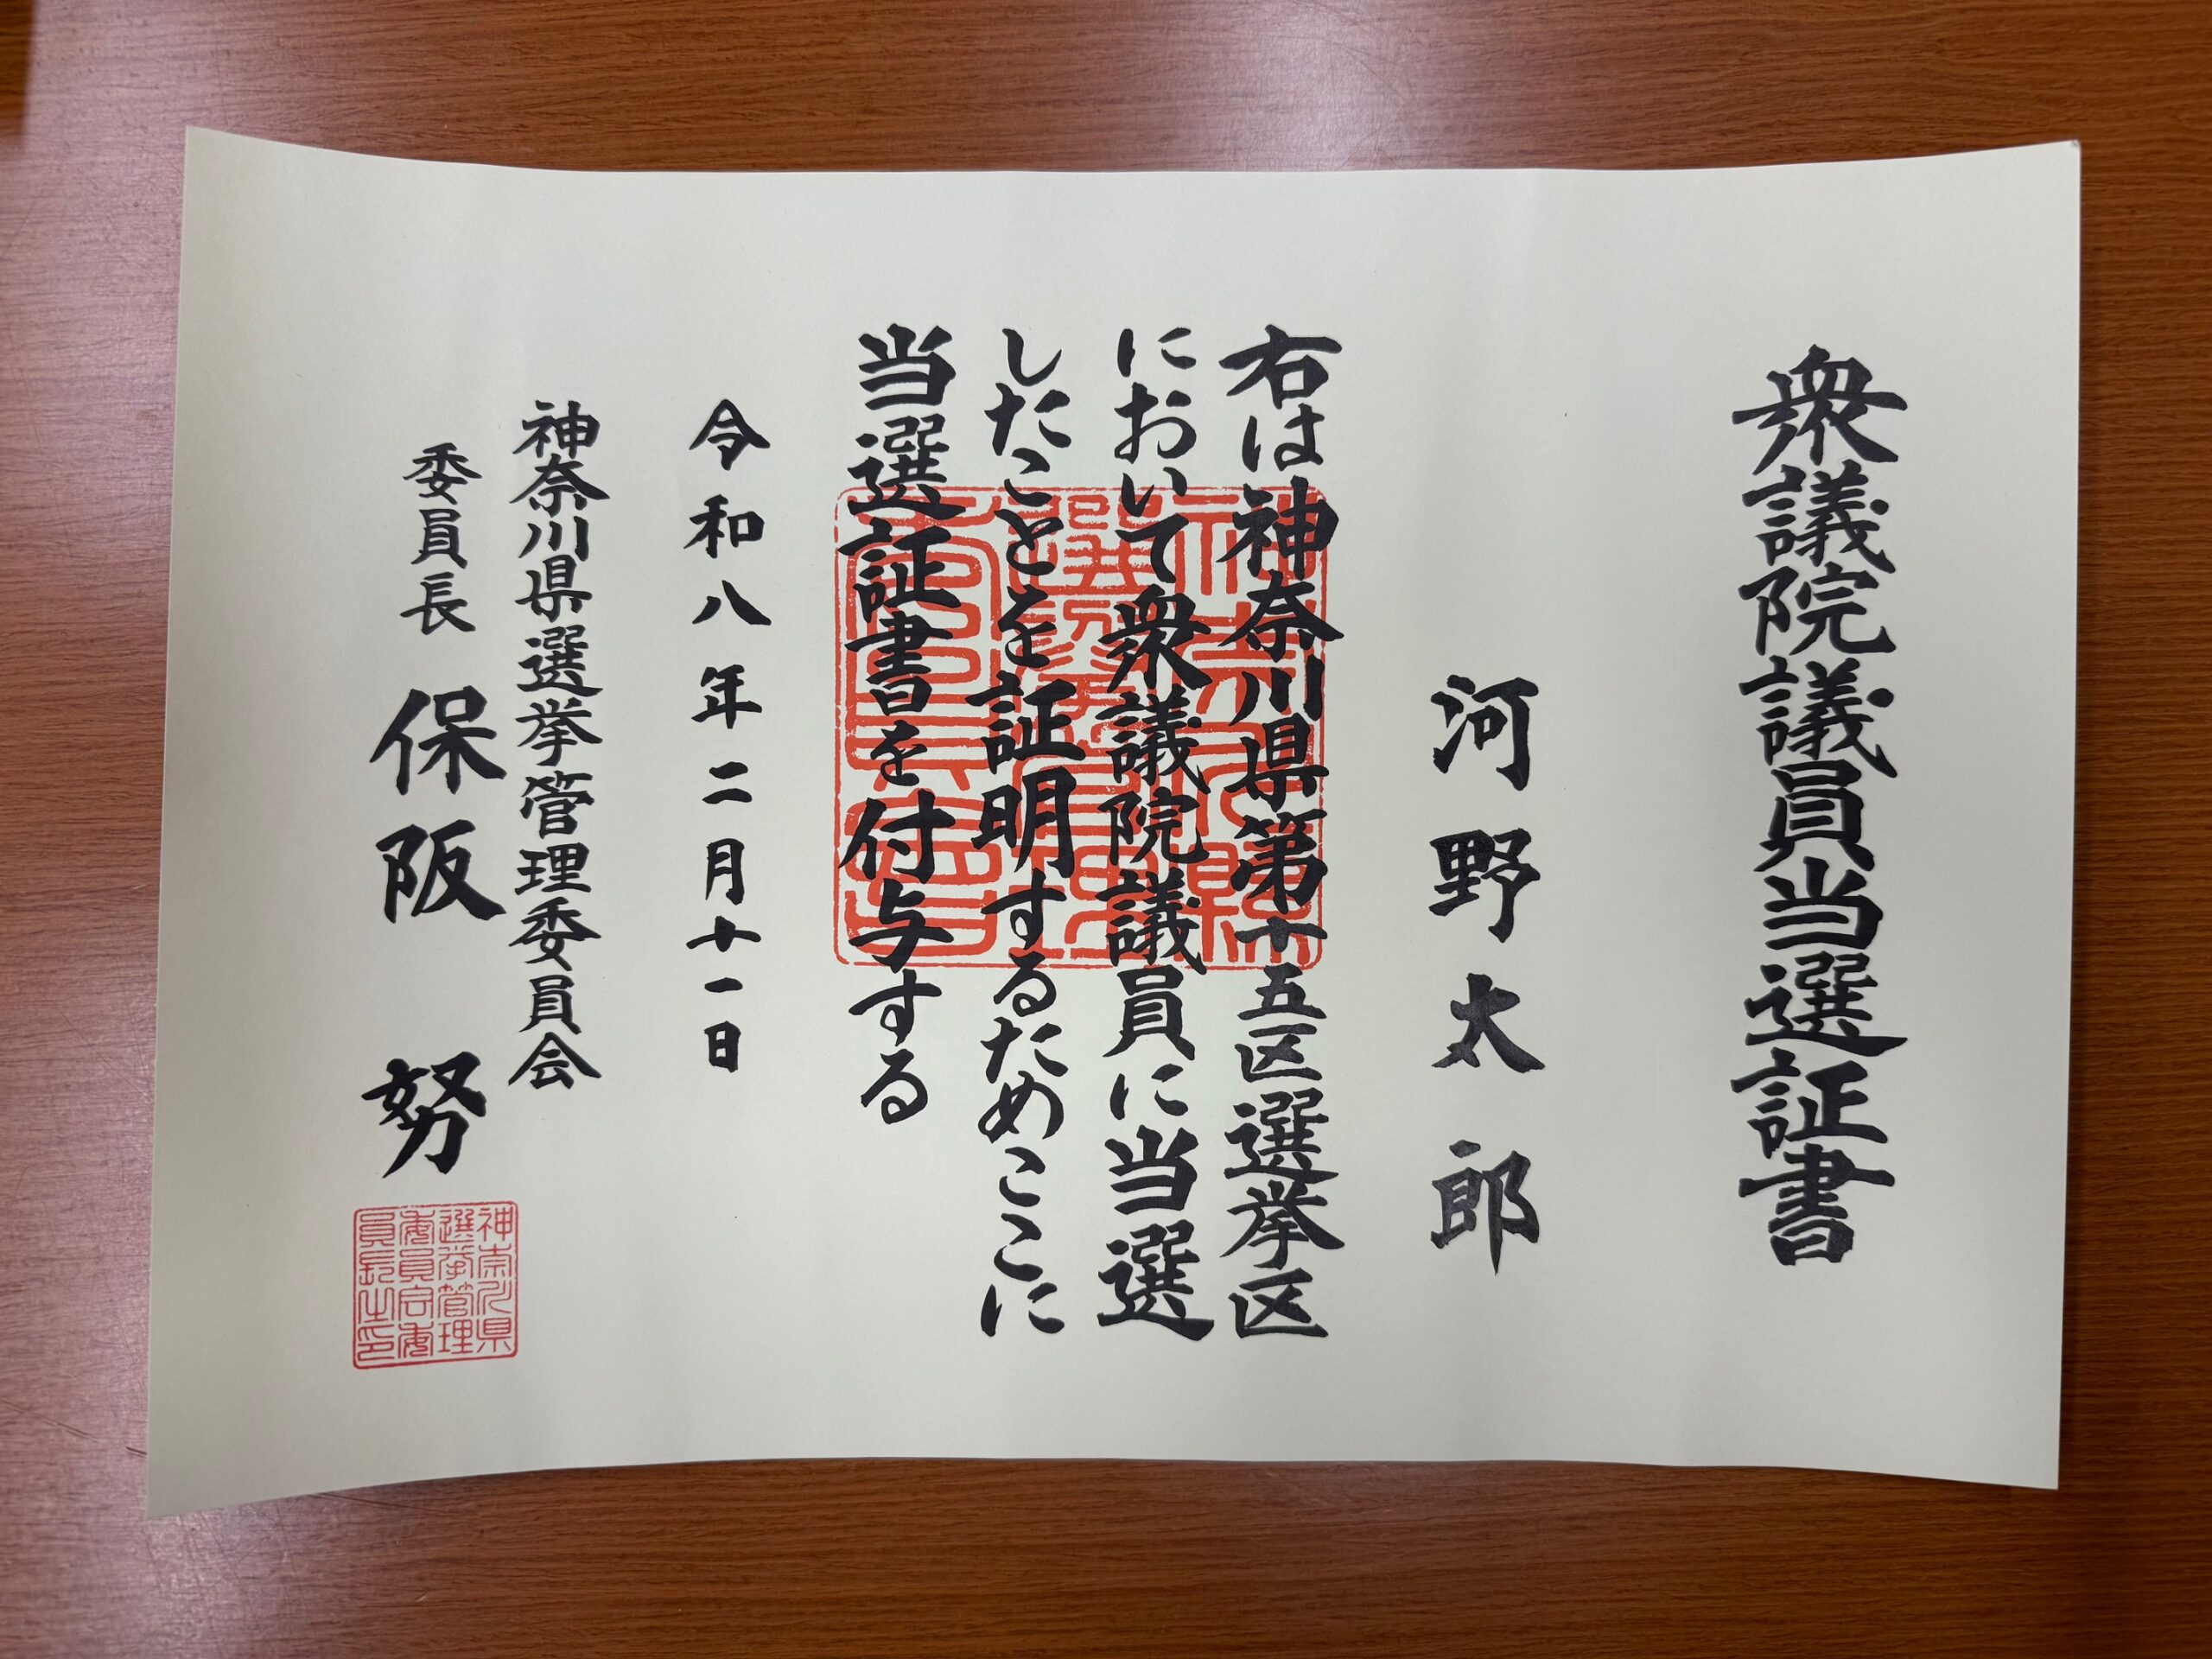 衆議院議員当選証書
河野太郎
右は神奈川県第十五区選挙区
において衆議院議員に当選
したことを証明するためここに
当選証書を付与する
令和八年二月十一日
神奈川県選挙管理委員会
委員長 保阪 努
神奈川県
選挙管理
委員会委
員長之印